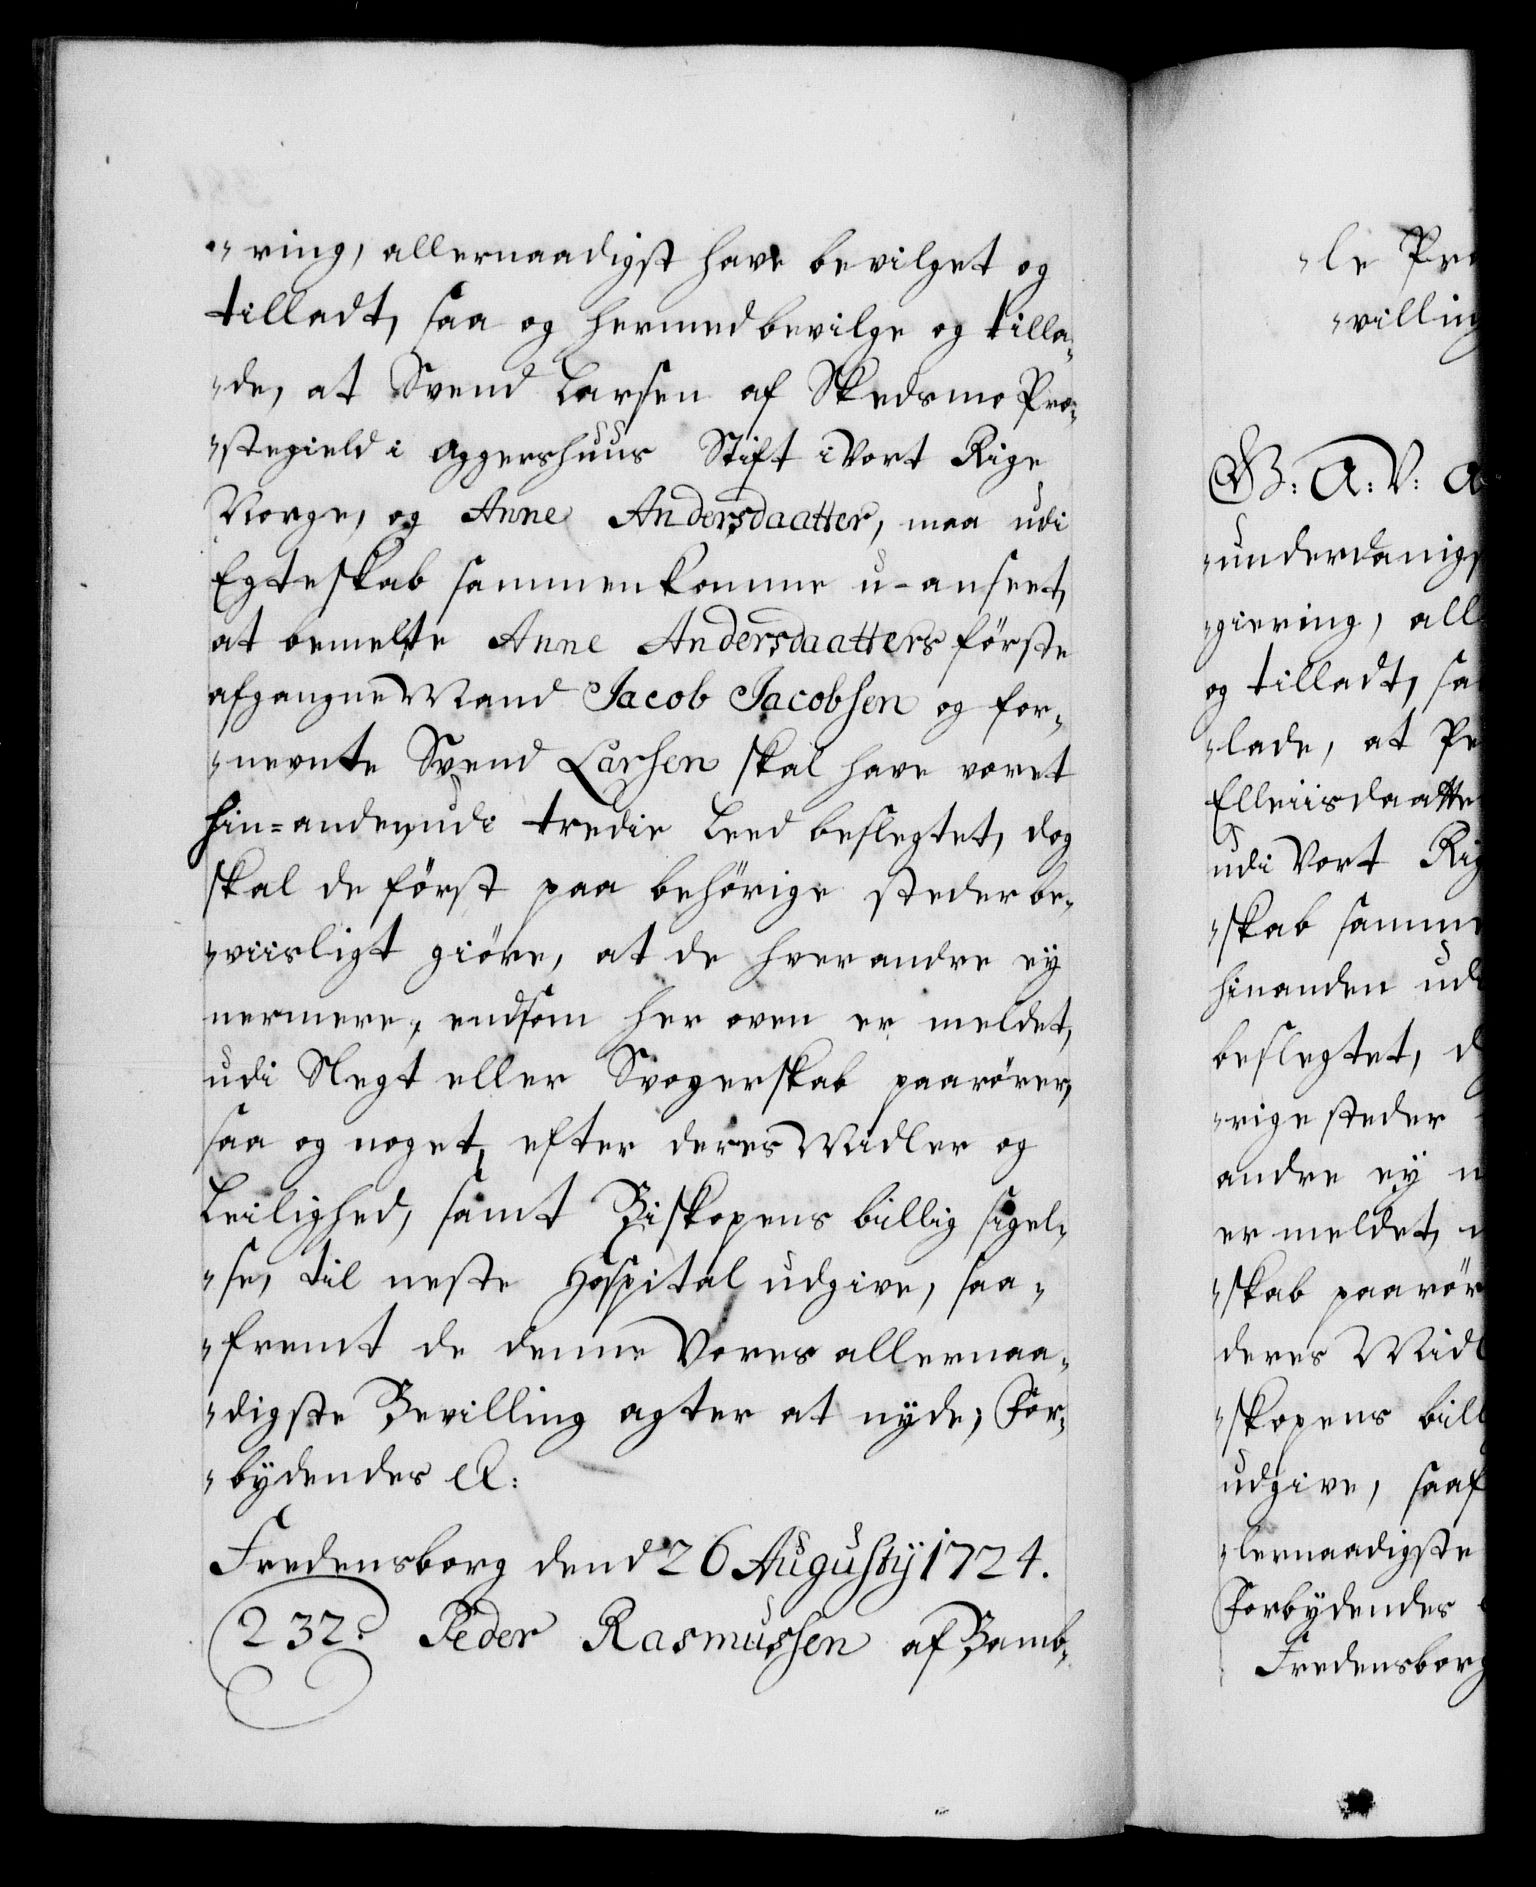 "ring, allernaadigst have bevilget og
tilladt, saa og hermed bevilge og tilla„
"de, at Svend Larsen af Skedsmo Præ„
"stegield i Aggershuus Stift i Vort Rige
Norge, og Anne Andersdaatter, maa udi
Egteskab sammenkomme u-anseet,
at bemelte Anne Andersdaatters förste
afgangne Mand Jacob Jacobsen og for„
"nevnte Svend Larsen skal have været
hin=anden udi tredie Leed beslegtet, dog
skal de först paa behörige steder be„
"viisligt giöre, at de hverandre ey
nermere, end som her oven er meldet,
udi Slegt eller Svogerskab paarörer,
saa og noget, efter deres Midler og
Leilighed, samt Biskopens billig sigel„
"se, til neste Hospital udgive, saa„
"fremt de denne Vores allernaa„
"digste Bevilling agter at nyde; For„
"bydendes &:
Fredensborg dend 26 Augusty 1724.
232. Peder Rasmussen af Bamb„
"le Præ
"villing
G: A: V: A
"underdanigs
"giering, all
og tilladt, sa
"lade, at Pe
Elleiisdaatte
udi Vort Rig
"skab samme
hinanden ud
beslegtet, d
"rige steder
andre ey n
er meldet, u
"skab paarör
deres Midl
"skopens bill
udgive, saaf
"lernaadigste
Forbydendes
Fredensborg